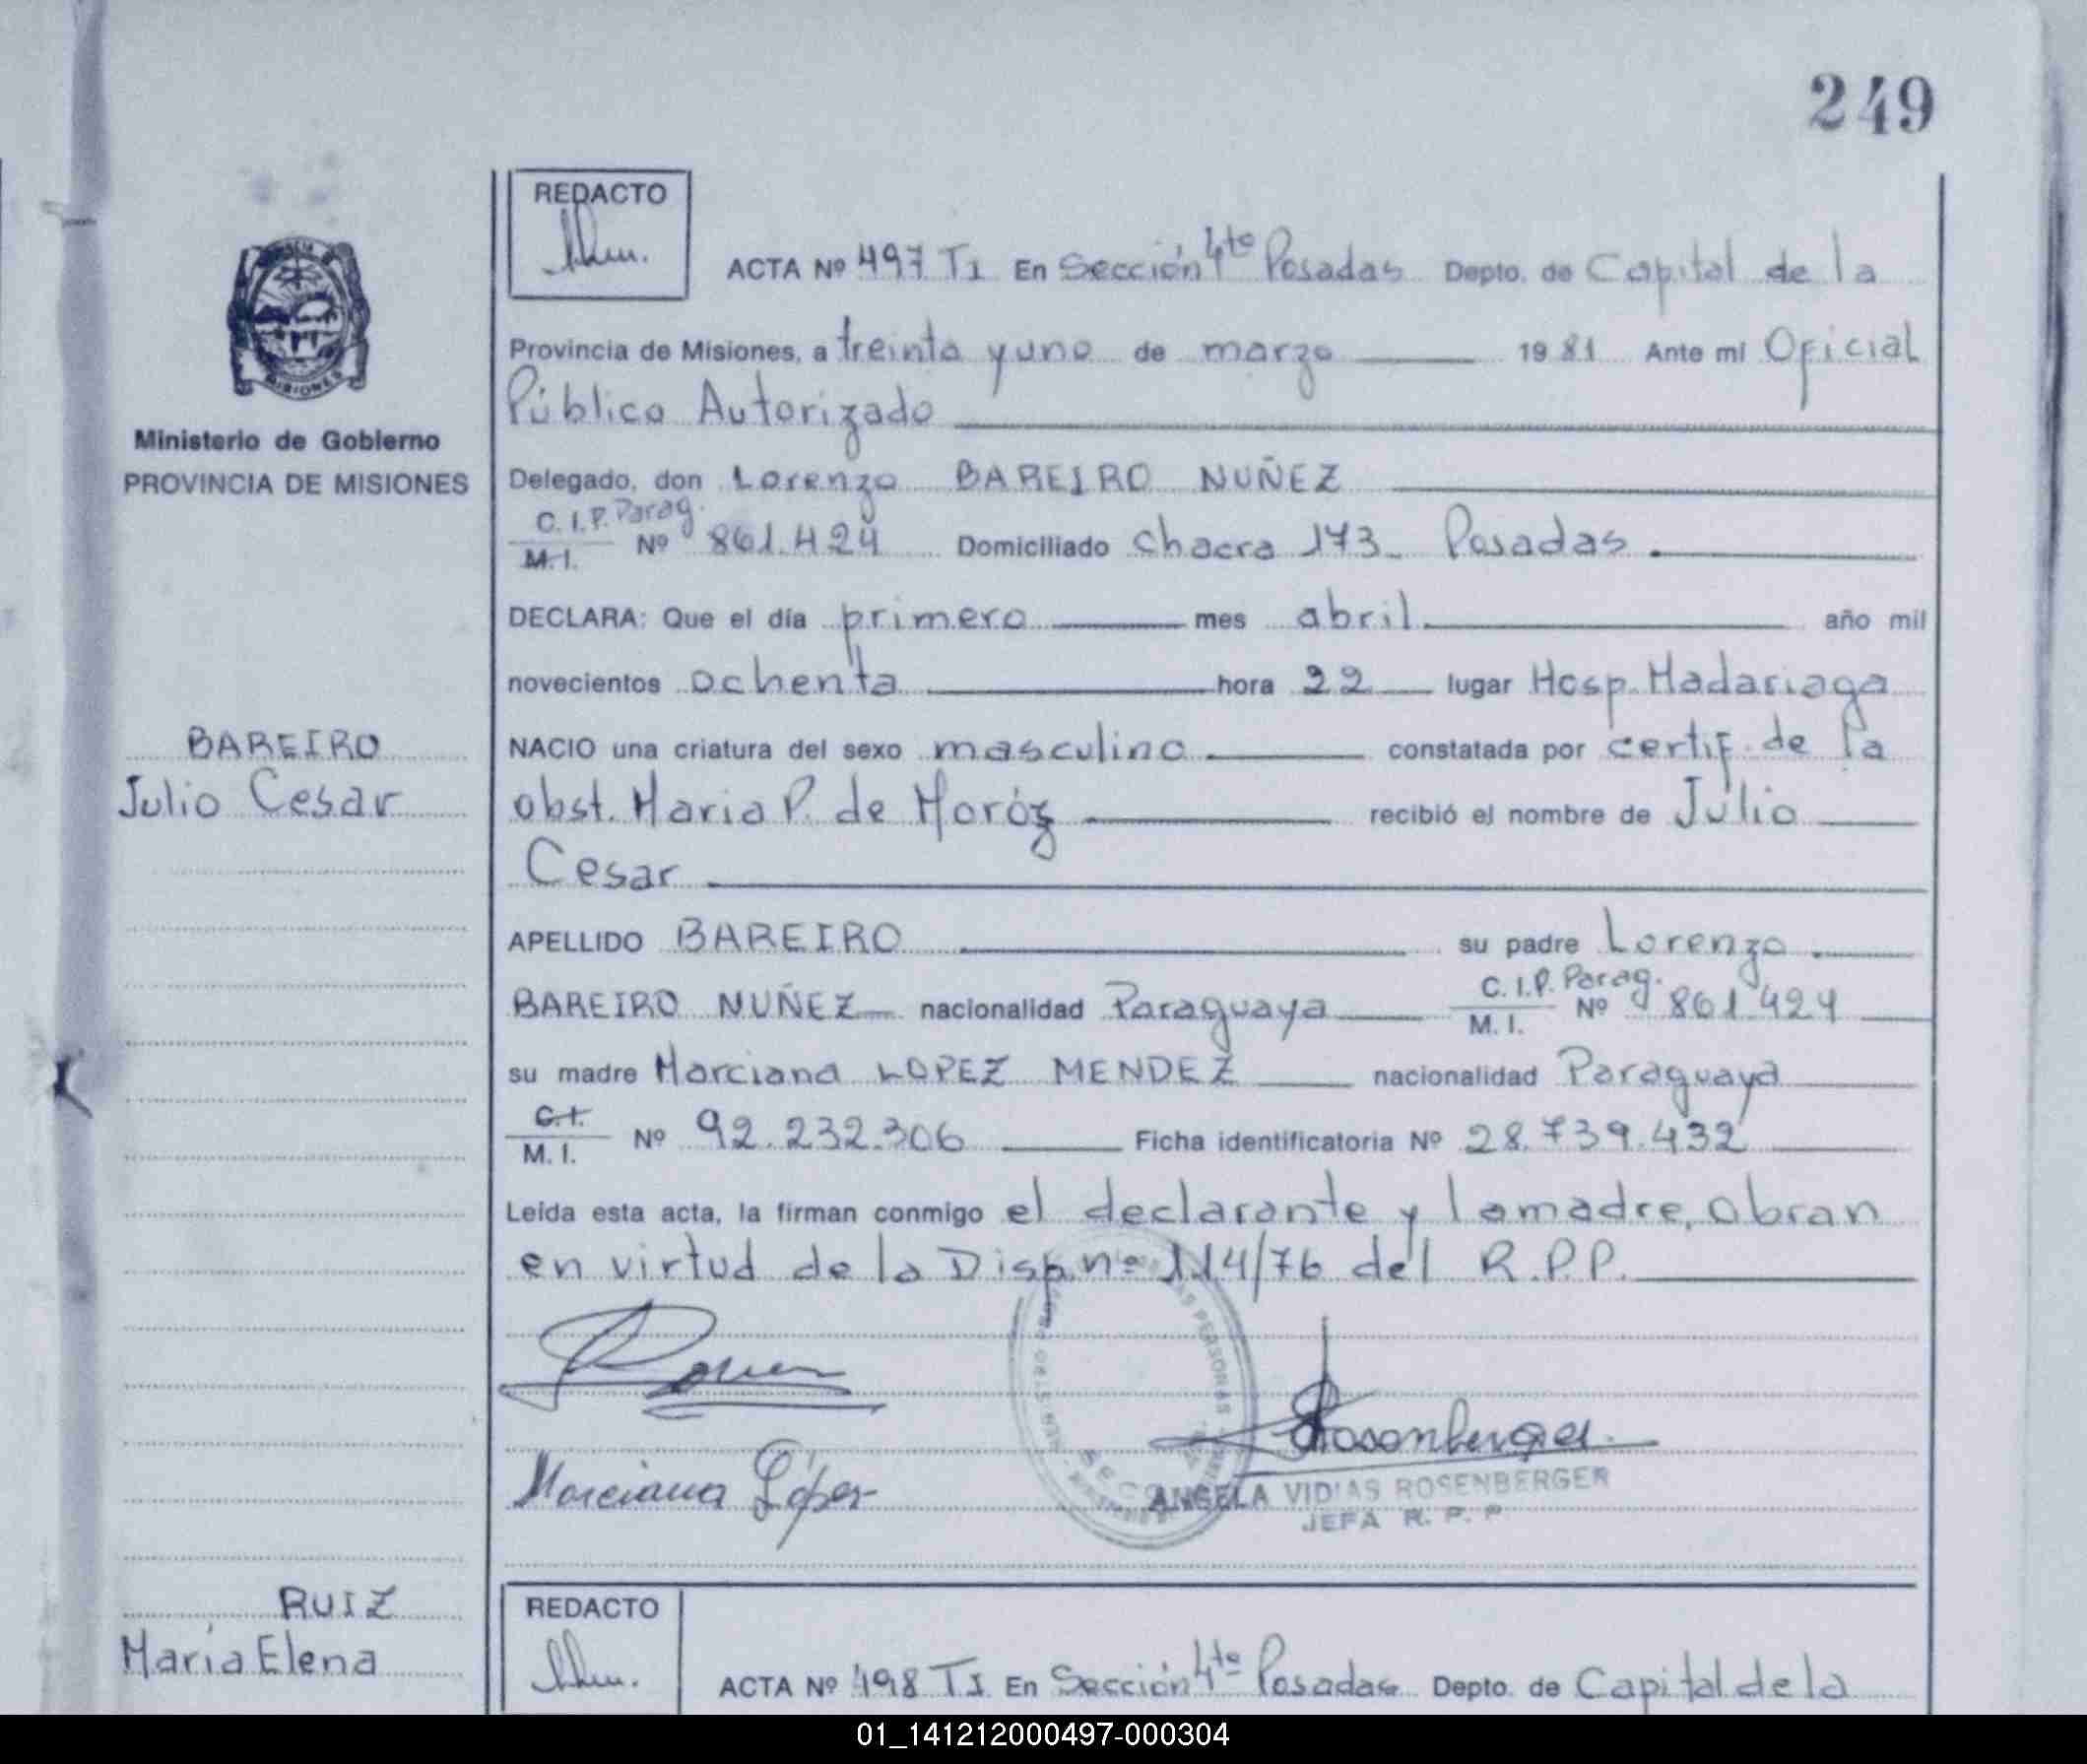 249
REDACTO
ACTA Nº 497 T1 En Sección 4to Posadas Depto. de Capital de la
Provincia de Misiones, a treinta y uno de marzo 1981 Ante mí Oficial
Público Autorizado
Ministerio de Gobierno
PROVINCIA DE MISIONES
Delegado, don Lorenzo BAREIRO NUÑEZ
C.I.P. Parag.
M.I. Nº 861.424 Domiciliado Chacra 173- Posadas.
DECLARA: Que el día primero mes abril año mil
novecientos ochenta hora 22 lugar Hosp. Madariaga
BAREIRO
Julio Cesar
NACIO una criatura del sexo masculino constatada por certif. de la
obst. Maria P. de Moróz recibió el nombre de Julio
Cesar
APELLIDO BAREIRO su padre Lorenzo
BAREIRO NUÑEZ nacionalidad Paraguaya C.I.P. Parag. M. I. Nº 861.424
su madre Marciana LOPEZ MENDEZ nacionalidad Paraguaya
C.I.
M. I. Nº 92.232.306 Ficha identificatoria Nº 28.739.432
Leída esta acta, la firman conmigo el declarante y la madre, obran
en virtud de la Disp. nº 114/76 del R.P.P.
Marciana López
Rosenberger
ANGELA VIDIAS ROSENBERGER
JEFA R. P. P
RUIZ
María Elena
REDACTO
ACTA Nº 498 T1 En Sección 4to Posadas Depto. de Capital de la
01_141212000497-000304